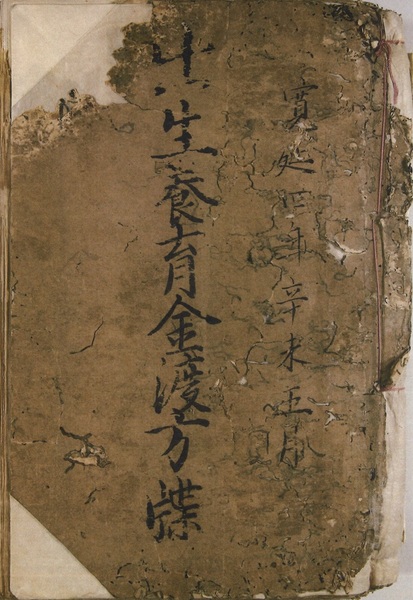 寛延四年辛未正月
出生養育金渡方牒